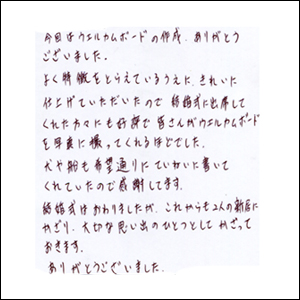 今回はウエルカムボードの作成、ありがとう
ございました。
よく特徴をとらえているうえに、きれいに
仕上げていただいたので 結婚式に出席して
くれた方々にも好評で 皆さんがウエルカムボード
を写真に撮ってくれるほどでした。
犬や船も希望通りにていねいに書いて
くれていたので感謝してます。
結婚式はおわりましたが、これからも2人の新居に
かざり、大切な思い出のひとつとして かざって
おきます。
ありがとうございました。